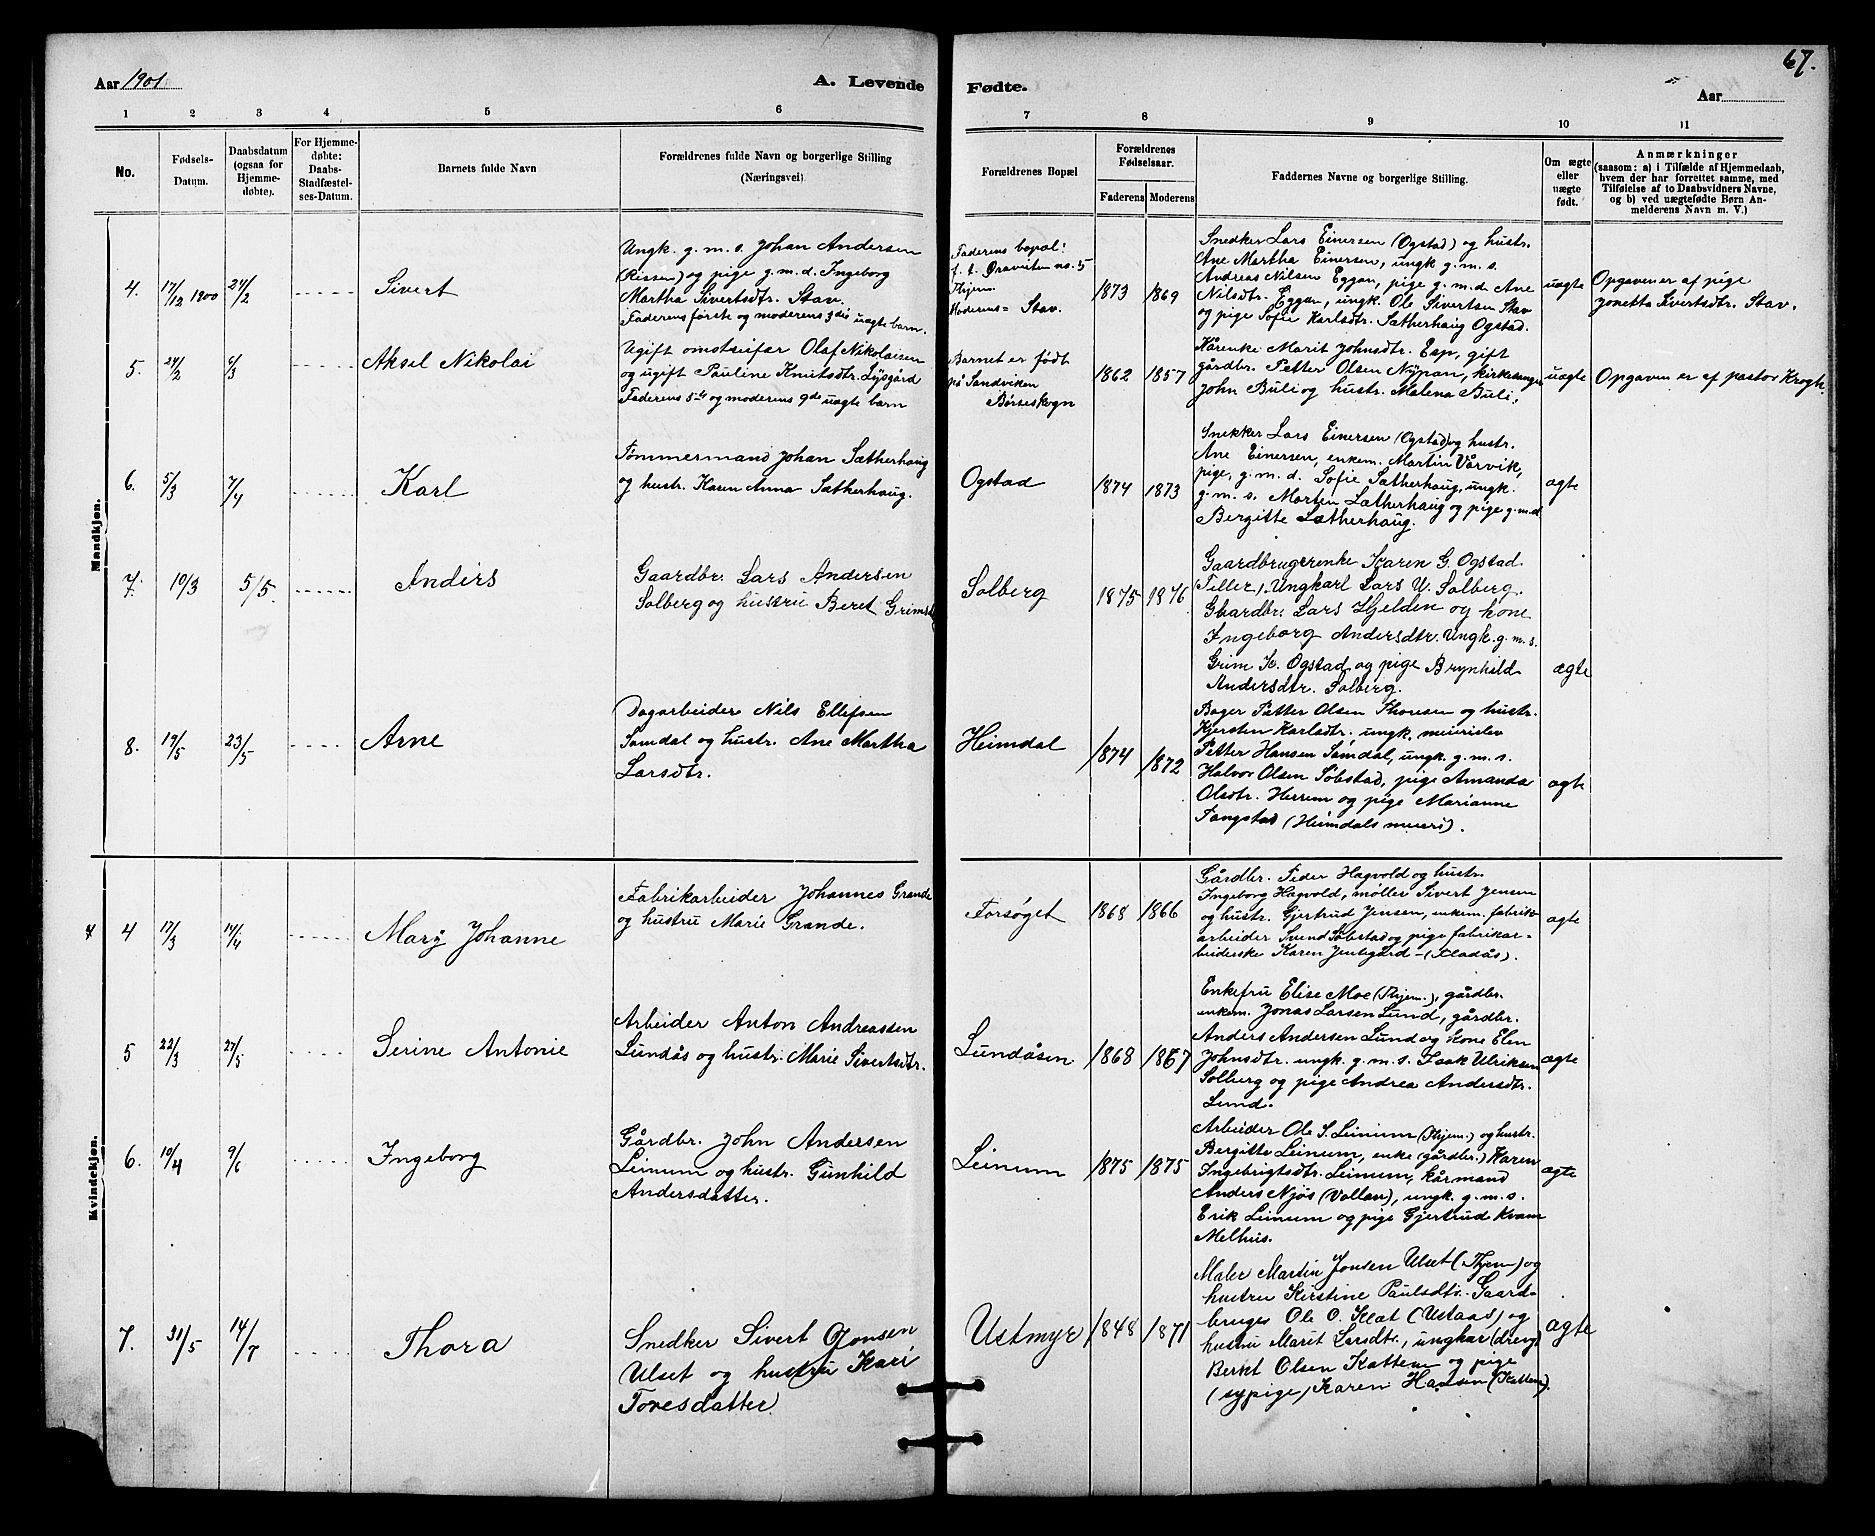 Aar 1901
A. Levende
Fødte.
Aar
67.
1 2 3 4 5 6 7 8 9 10 11
No.
Fødsels-
Datum.
Daabsdatum
(ogsaa for
Hjemme-
døbte).
For Hjemme-
døbte:
Daabs-
Stadfæstel-
ses-Datum.
Barnets fulde Navn
Forældrenes fulde Navn og borgerlige Stilling
(Næringsvei).
Forældrenes Bopæl
Forældrenes
Fødselsaar.
Faderens Moderens
Faddernes Navne og borgerlige Stilling.
Om ægte
eller
uægte
født.
Anmærkninger
(saasom: a) i Tilfælde af Hjemmedaab,
hvem der har forrettet samme, med
Tilføielse af to Daabsvidners Navne,
og b) ved uægtefødte Børn An-
melderens Navn m. V.)
Mandkjøn.
4. 17/12 1900 24/2 Sivert
Ungk. g. m. s. Johan Andersen
(Rissen) og pige g. m. d. Ingeborg
Martha Sivertsdtr. Stav.
Faderens første og moderens 3die uægte barn.
Faderens bopæl:
f. t. Draviten no. 5
Thjem.
Moderens = Stav.
1873 1869
Snedker Lars Einersen (Ogstad) og hustr.
Ane Martha Einersen, ungk g. m. s.
Andreas Nilsen Eggan, pige g. m. d Ane
Nilsdtr. Eggan, ungk. Ole Sivertsen Stav
og pige Sofie Karlsdtr. Sætherhaug Ogstad.
uægte
Opgaven er af pige
Jonetta Sivertsdtr. Stav.
5. 24/2 6/3 Aksel Nikolai
Ugift omstreifer Olaf Nikolaisen
og ugift Pauline Knutsdtr. Lysgård
Faderens 5te og moderens 9de uægte barn
Barnet er født
på Sandviken
Børseskogn
1862 1857
Kårenke Marit Johnsdtr. Esp, gift
gårdbr. Petter Olsen Nypan, kirkesanger
John Buli og hustr. Malena Buli.
uægte
Opgaven er af pastor Krogh.
6. 5/3 7/4 Karl
Tømmermand Johan Sætherhaug
og hustr. Karen Anna Sætherhaug.
Ogstad
1874 1873
Snekker Lars Einersen (Ogstad) og hustr.
Ane Einersen, enkem. Martin Vårvik,
pige, g. m. d. Sofie Sætherhaug, ungk.
g. m. s. Morten Sætherhaug og pige g. m. d
Bergitte Sætherhaug.
ægte
7. 10/3 5/5. Anders
Gaardbr. Lars Andersen
Solberg og hustru Beret Grimsd
Solberg
1875 1876
Gaardbrugerenke Karen G. Ogstad.
(Tiller), Ungkarl Lars U. Solberg.
Gaardbr. Lars Hjelden og kone
Ingeborg Andersdtr. Ungk. g. m. s.
Grim K. Ogstad og pige Brynhild
Andersdtr. Solberg.
ægte
8. 19/5 23/5 Arne
Dagarbeider Nils Ellefsen
Samdal og hustr. Ane Martha
Larsdtr.
Heimdal
1874 1872
Bager Petter Olsen Thonsen og hustr.
Kjersten Karlsdtr. ungk. meierislev
Petter Hansen Samdal, ungk. g. m. s.
Halvor Olsen Søbstad, pige Amanda
Olsdtr. Herrem og pige Marianne
Fangstad (Heimdals meieri).
ægte
Kvindekjøn.
4 17/3 14/4 Mary Johanne
Fabrikarbeider Johannes Grande
og hustru Marie Grande.
Forsøget
1868 1866
Gårdbr. Peder Hagvold og hustr.
Ingeborg Hagvold, møller Sivert Jensen
og hustr. Gjertrud Jensen, enkem. fabrik-
arbeider Svend Søbstad og pige fabrikar-
beiderske Karen Jentegård - (Fladås).
ægte
5 22/3 27/5 Serine Antonie
Arbeider Anton Andreassen
Lundås og hustr. Marie Sivertsdtr.
Lundåsen
1868 1867
Enkefru Elise Moe (Thjem.), gårdbr.
enkem. Jonas Larsen Lund, gårdbr.
Anders Andersen Lund og kone Elen
Johnsdtr. ungk. g. m. s. Isak Ulriksen
Solberg og pige Andrea Andersdtr.
Lund.
ægte
6. 10/4 9/6 Ingeborg
Gårdbr. John Andersen
Leinum og hustr. Gunhild
Andersdatter.
Leinum
1875 1875
Arbeider Ole S. Leinum (Thjem.) og hustr.
Bergitte Leinum, enke (gårdbr.) Karen
Ingebrigtsdtr. Leinum, kårmand
Anders Njøs (Vollan), ungk. g. m. s.
Erik Leinum og pige Gjertrud Kvam
Melhus.
ægte
7. 31/5 14/7 Thora
Snedker Sivert Jonsen
Ulset og hustru Kari
Toresdatter.
Ustmyr
1848 1871
Maler Martin Jonsen Ulset (Thjem) og
hustru Kirstine Paulsdtr. Gaard-
bruger Ole O. Klæt (Ustaas) og
hustru Marit Larsdtr., ungkar (dreng)
Berkt Olsen Kattem og pige
(sypige) Karen Hansen (Kattem).
ægte